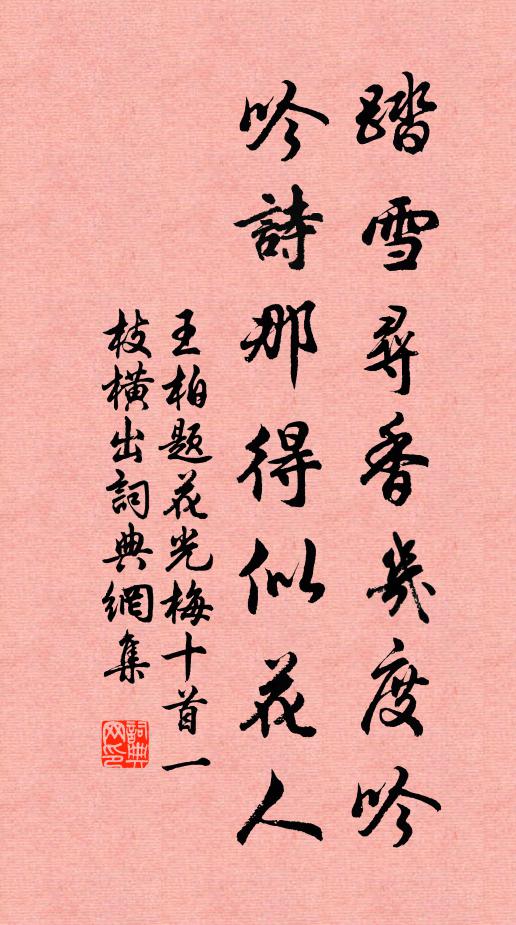 踏雪尋香幾度吟
吟詩那得似花人
王柏題花光梅十首一
枝橫出詞典網集
詞典
网印